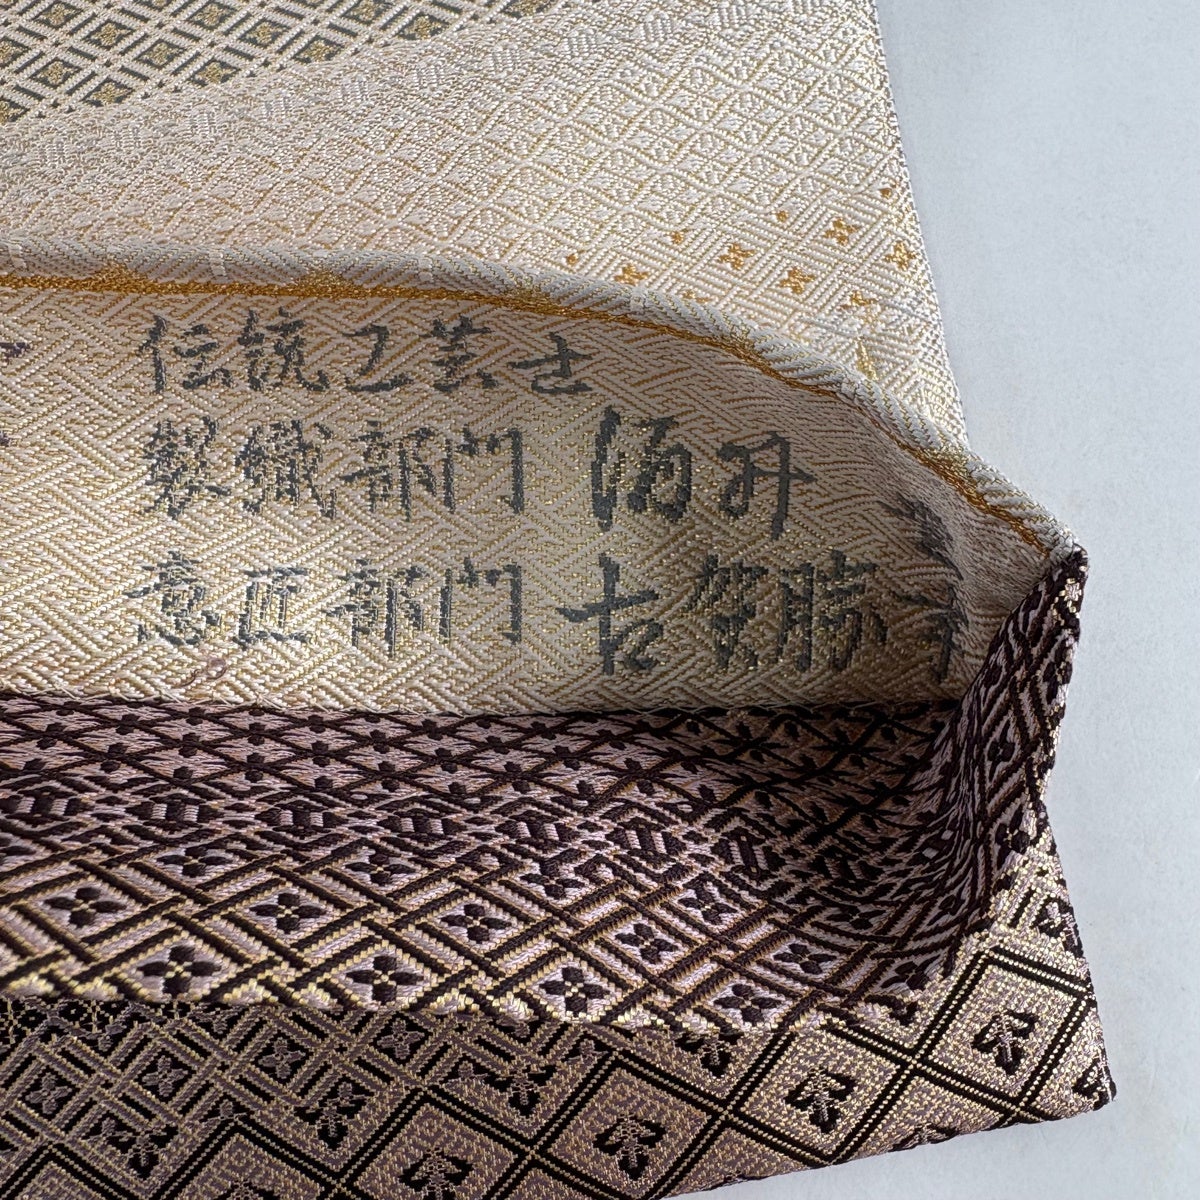 伝統工芸士
製織部門 酒井
意匠部門 古賀勝